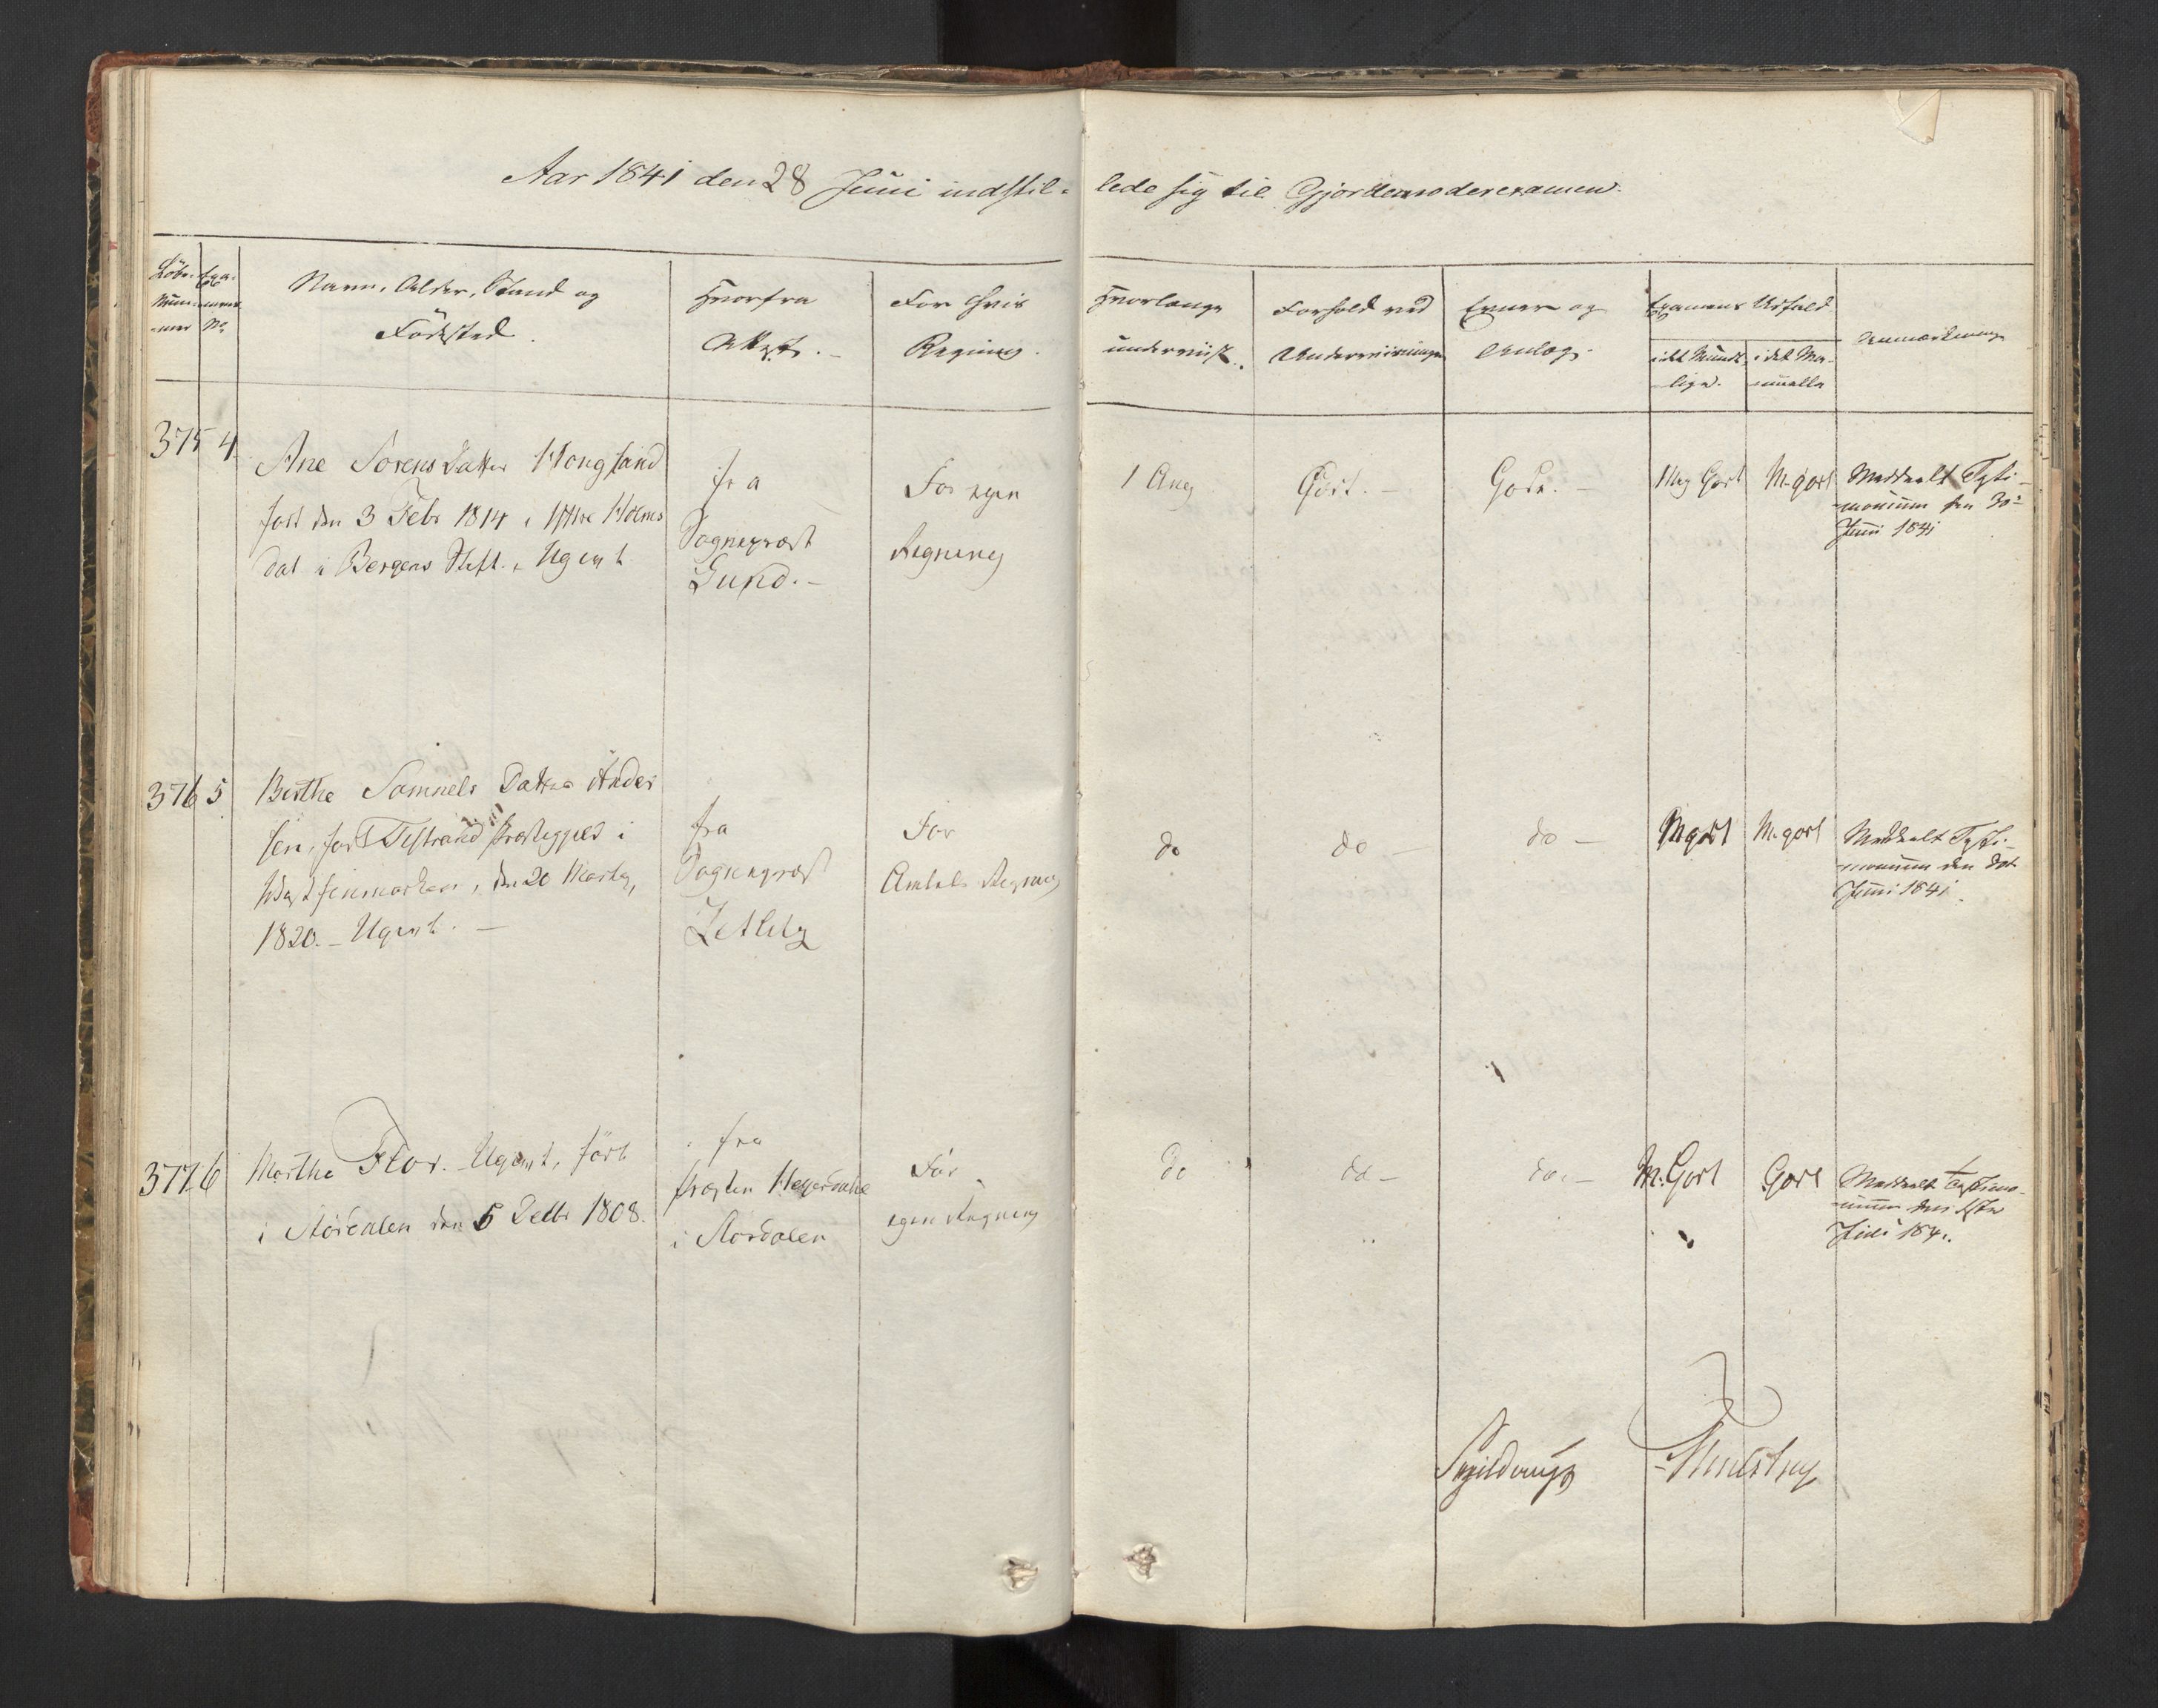 Aar 1841 den 28 Juni indstil-
lede sig til Gjordemoderexamen.
Löbe-
Num-
mer
Exa-
mens
No
Navn, Alder, Stand og
Födested.
Hvorfra
Attest.
For Hvis
Regning.
Hvorlænge
underviist.
Forhold ved
Undervisningen
Evner og
Anlæg.
Examens Udfald
i det Mundt-
lige.
i det Ma-
nuelle
Anmærkning
375 4.
Ane Sorens Datter
født den 3 Febr 1814 i Holme
dal i Bergens Stift. Ugivt
fra
Sognepræst
Lund. -
For egen
Regning
1 Aug
Godt. -
Gode. -
Meg Godt
M. godt
Meddeelt Testi-
monium den 30
Juni 1841
376 5
Berthe Samuels Datter Ander
sen, født Præstegjeld i
Vestfinmarken, den 20 Marty,
1820. - Ugivt. -
fra
Sognepræst
Zetlitz
For
Amtets Regning
do
do -
do -
M godt
M. godt
Meddeelt Testi-
monium den
Juni 1841.
377 6
Marthe Flor. Ugivt, født
i den 5 1808.
fra
Præsten Heyerdahl
i
For
egen Regning
do
do -
do. -
M. Godt
Godt
Meddeelt Testimo-
nium den 1ste
Juli 184